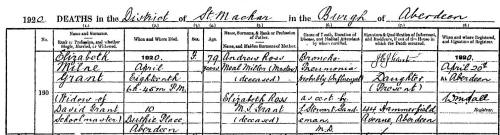 1920 DEATHS in the District of St. Machar in the Burgh of Aberdeen
No.
Name and Surname.
Rank or Profession, and whether Single, Married, or Widowed.
When and Where Died.
Sex.
Age.
Name, Surname, & Rank or Profession of Father.
Name, and Maiden Surname of Mother.
Cause of Death, Duration of Disease, and Medical Attendant by whom certified.
Signature & Qualification of Informant, and Residence, if out of the House in which the Death occurred.
When and where Registered, and Signature of Registrar.
190
Elizabeth
Milne
Grant
(Widow of
David Grant
Schoolmaster)
1920.
April
Eighteenth
6h. 45m P.M.
10
Duthie Place
Aberdeen
79
years
Andrew Ross
Meal Miller (Master)
(deceased)
Elizabeth Ross
M.S. Grant
(deceased)
Broncho-
Pneumonia
as cert by
M.B.
Grant
Daughter
(Present)
444
Avenue, Aberdeen
1920
April 20th
at Aberdeen
Registrar.